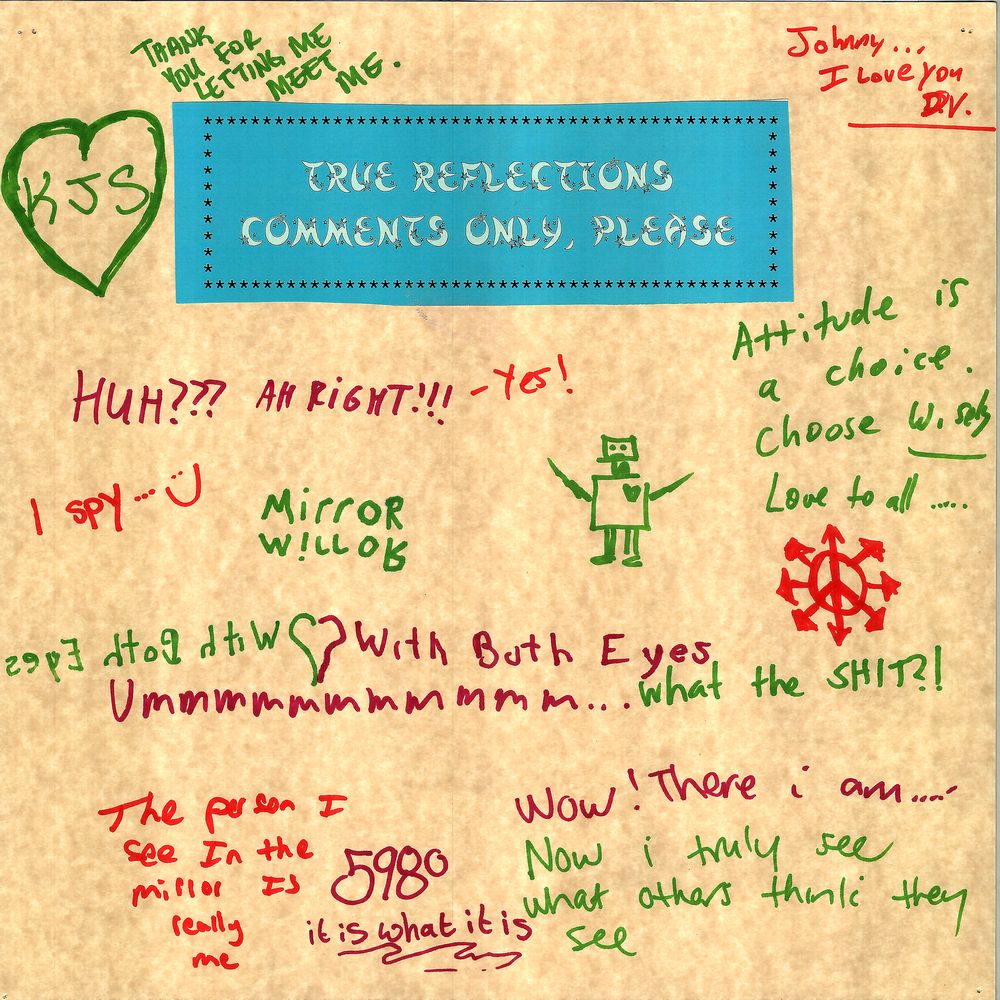 THANK
YOU FOR
LETTING ME
MEET
ME.
Johnny...
I Love you
D.V.
KJS
TRUE REFLECTIONS
COMMENTS ONLY, PLEASE
Attitude is
a choice.
choose Wisely
Love to all .....
HUH??? AH RIGHT!!! -Yes!
I SPY...
MirroR
MirroR
With Both Eyes
With Both Eyes
Ummmmmmmmmmm...what the SHIT?!
The person I
see In the
mirror Is
really
me
5980
it is what it is
Wow! There i am.....
Now i truly see
what others think they
see